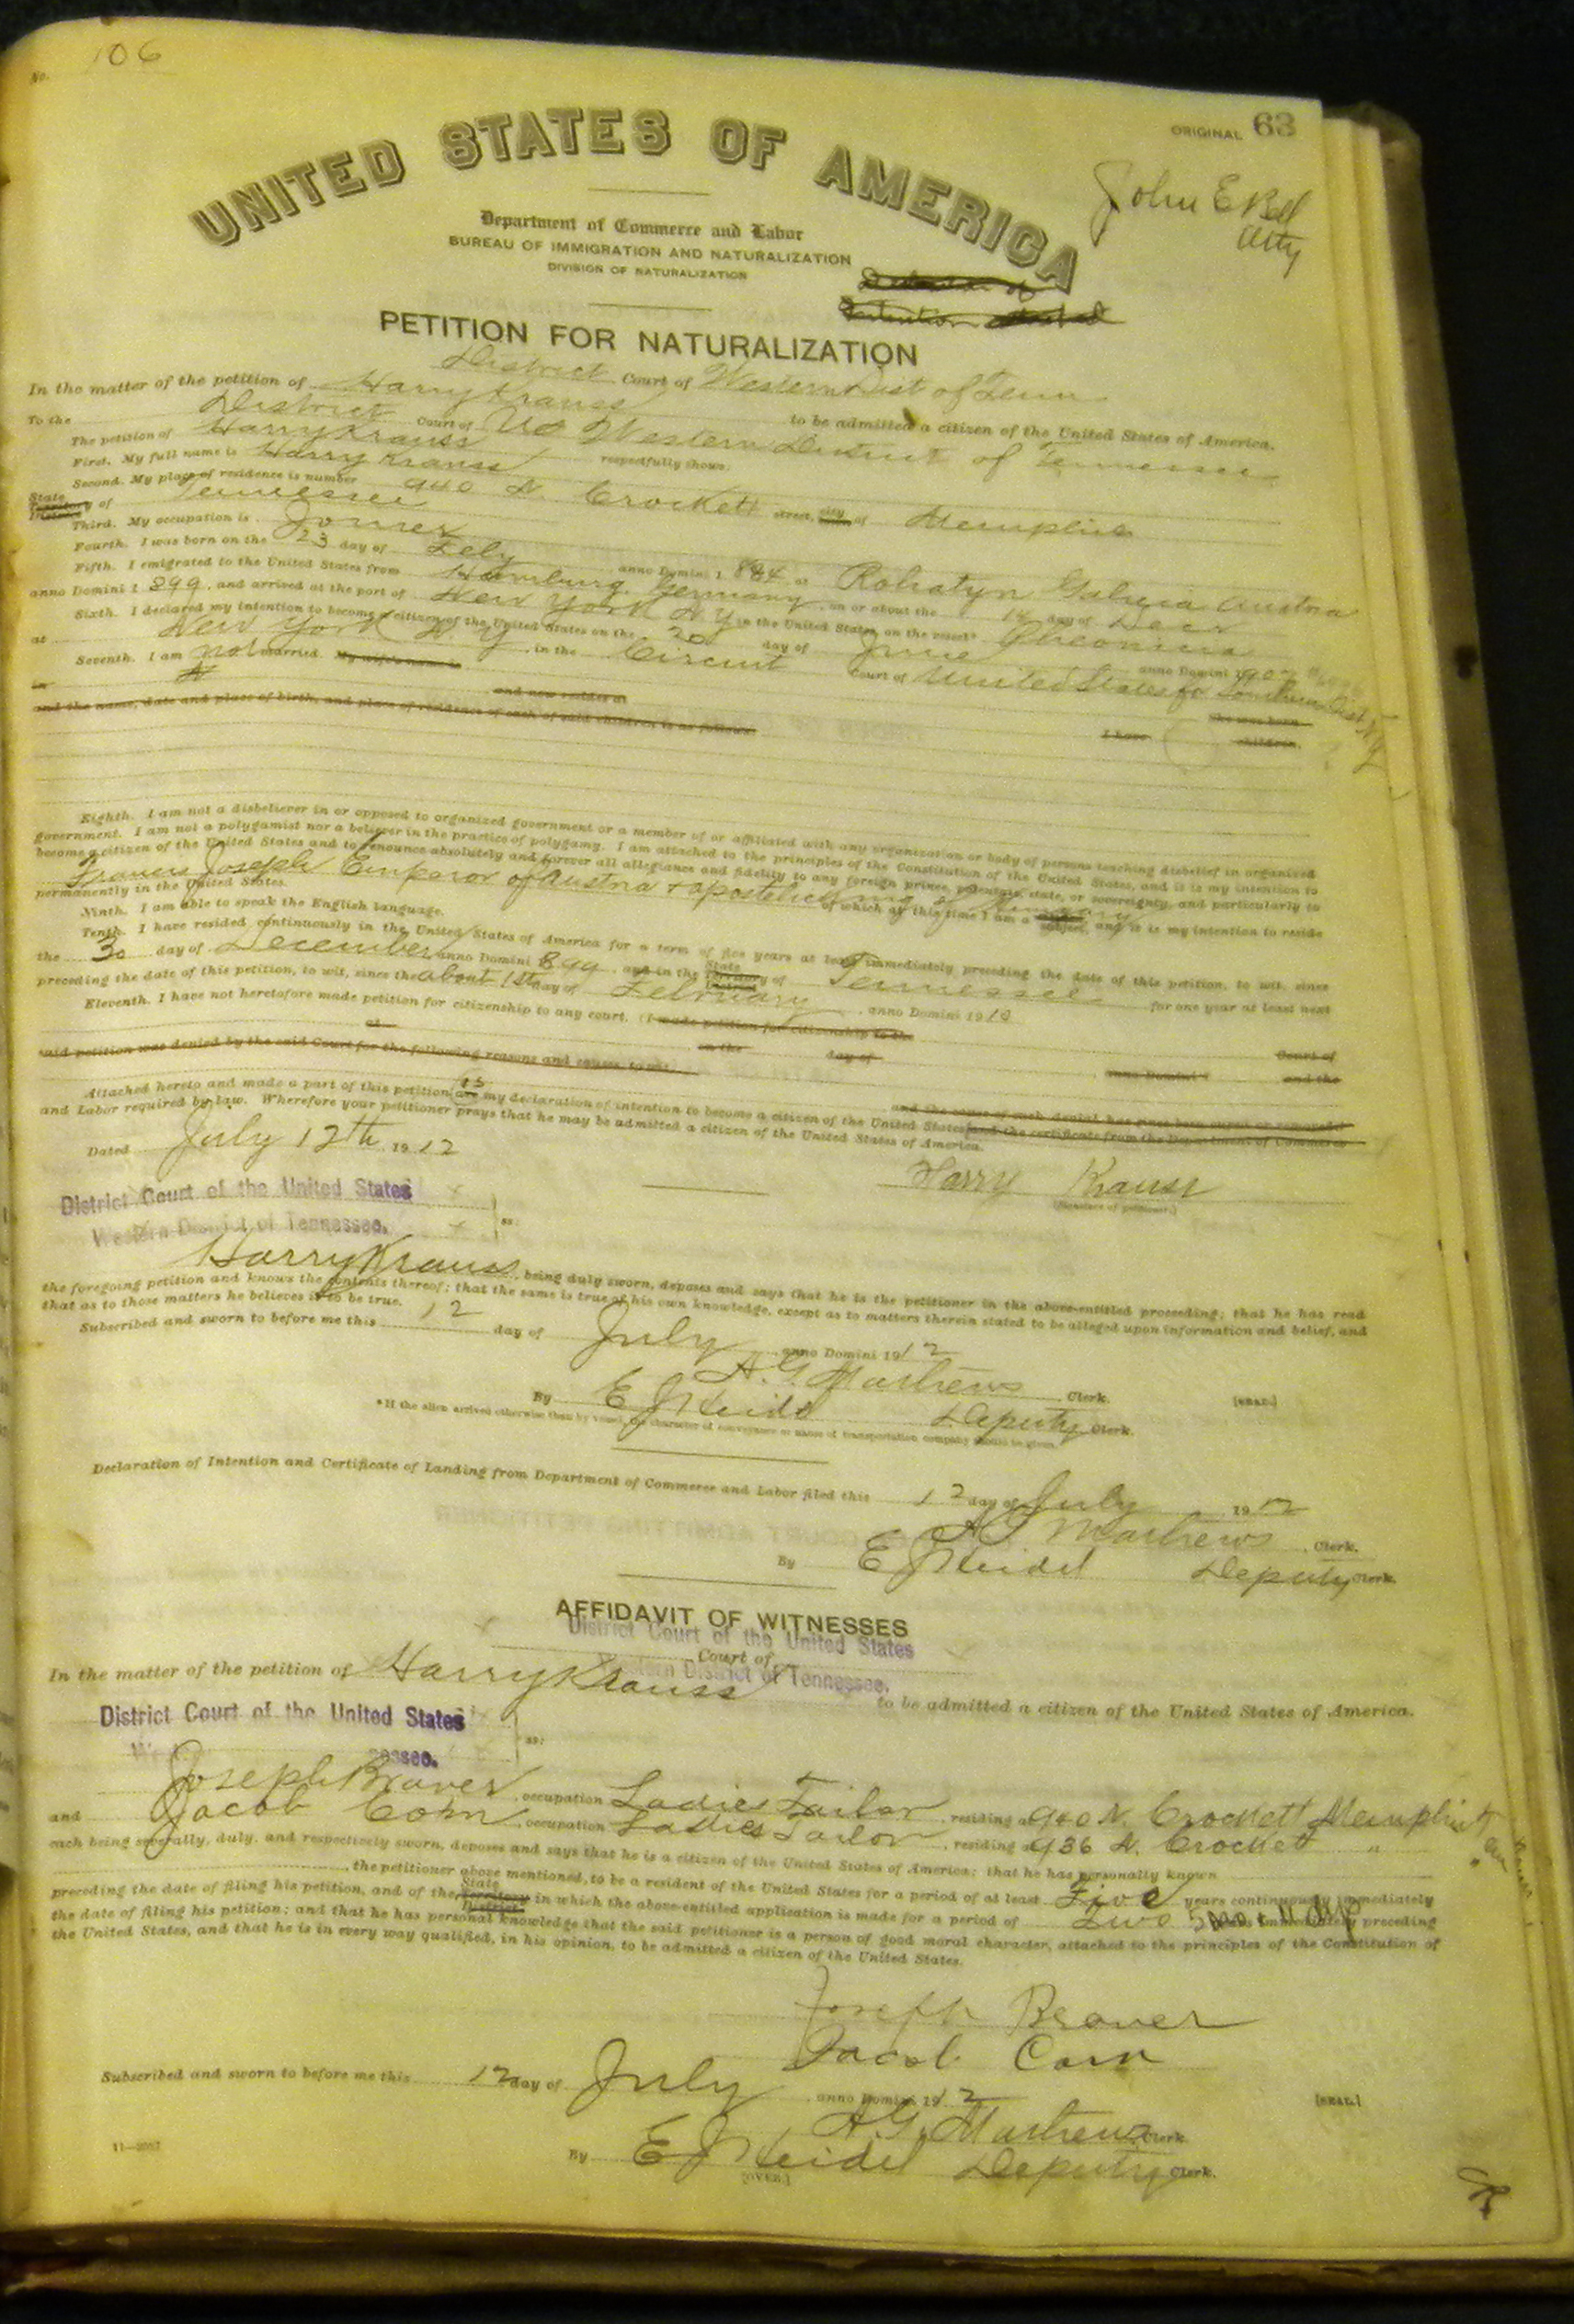 No. 106
ORIGINAL 63
UNITED STATES OF AMERICA
John E Bell
Atty
Department of Commerce and Labor
BUREAU OF IMMIGRATION AND NATURALIZATION
DIVISION OF NATURALIZATION
PETITION FOR NATURALIZATION
District Court of Western Dist of Tenn
In the matter of the petition of Harry Krauss to be admitted a citizen of the United States of America.
To the District Court of US Western District of Tennessee
The petition of Harry Krauss respectfully shows:
First. My full name is Harry Krauss
Second. My place of residence is number 940 N Crockett street, city of Memphis
State Territory District of Tennessee
Third. My occupation is Joiner
Fourth. I was born on the 23 day of Feby anno Domini 1 884, at Rohatyn Galicia Austria
Fifth. I emigrated to the United States from Hamburg Germany, on or about the 14 day of Decr
anno Domini 1 899, and arrived at the port of New York N Y in the United States, on the vessel*
Sixth. I declared my intention to become a citizen of the United States on the 20 day of June anno Domini 1907
at New York N. Y. in the Circuit Court of United States for Southern Dist N.Y.
Seventh. I am not married. My wife's name is
in and now resides at She was born
I have children,
and the name, date and place of birth, and place of residence of each of said children is as follows:
Eighth. I am not a disbeliever in or opposed to organized government or a member of or affiliated with any organization or body of persons teaching disbelief in organized
government. I am not a polygamist nor a believer in the practice of polygamy. I am attached to the principles of the Constitution of the United States, and it is my intention to
become a citizen of the United States and to renounce absolutely and forever all allegiance and fidelity to any foreign prince, potentate, state, or sovereignty, and particularly to
Francis Joseph Emperor of Austria + apostolic King of Hungary of which at this time I am a subject, and it is my intention to reside
permanently in the United States.
Ninth. I am able to speak the English language.
Tenth. I have resided continuously in the United States of America for a term of five years at least immediately preceding the date of this petition, to wit, since
the 30 day of December anno Domini 1 899, and in the State Territory District of Tennessee for one year at least next
preceding the date of this petition, to wit, since the about 1st day of February, anno Domini 1910
Eleventh. I have not heretofore made petition for citizenship to any court. (I made petition for citizenship to the
at on the day of Court of
anno Domini 1 and the
said petition was denied by the said Court for the following reasons and causes, to wit,
and the cause of such denial has since been cured or removed.)
Attached hereto and made a part of this petition are is my declaration of intention to become a citizen of the United States and the certificate from the Department of Commerce
and Labor required by law. Wherefore your petitioner prays that he may be admitted a citizen of the United States of America.
Dated July 12th, 1912
Harry Krauss
(Signature of petitioner.)
District Court of the United States
Western District of Tennessee. ss:
Harry Krauss, being duly sworn, deposes and says that he is the petitioner in the above-entitled proceeding; that he has read
the foregoing petition and knows the contents thereof; that the same is true of his own knowledge, except as to matters therein stated to be alleged upon information and belief, and
that as to those matters he believes it to be true.
Subscribed and sworn to before me this 12 day of July, anno Domini 1912
A. G. Mathews, Clerk. [SEAL.]
By E J Heidel Deputy Clerk.
*If the alien arrived otherwise than by vessel, the character of conveyance or name of transportation company should be given.
Declaration of Intention and Certificate of Landing from Department of Commerce and Labor filed this 12 day of July, 1912
A G Mathews, Clerk.
By E J Heidel Deputy Clerk.
AFFIDAVIT OF WITNESSES
District Court of the United States
Court of
Western District of Tennessee.
In the matter of the petition of Harry Krauss to be admitted a citizen of the United States of America.
District Court of the United States
ss:
Joseph Braver, occupation Ladies Tailor, residing at 940 N. Crockett Memphis
and Jacob Corn, occupation Ladies Tailor, residing at 936 N. Crockett "
each being severally, duly, and respectively sworn, deposes and says that he is a citizen of the United States of America; that he has personally known
, the petitioner above mentioned, to be a resident of the United States for a period of at least Five years continuously immediately
preceding the date of filing his petition, and of the State Territory District in which the above-entitled application is made for a period of Two 5 mo + 11 days years immediately preceding
the date of filing his petition; and that he has personal knowledge that the said petitioner is a person of good moral character, attached to the principles of the Constitution of
the United States, and that he is in every way qualified, in his opinion, to be admitted a citizen of the United States.
Joseph Braver
Jacob Corn
Subscribed and sworn to before me this 12 day of July, anno Domini 1912 [SEAL.]
A. G. Mathews, Clerk.
By E J Heidel Deputy Clerk.
[OVER.]